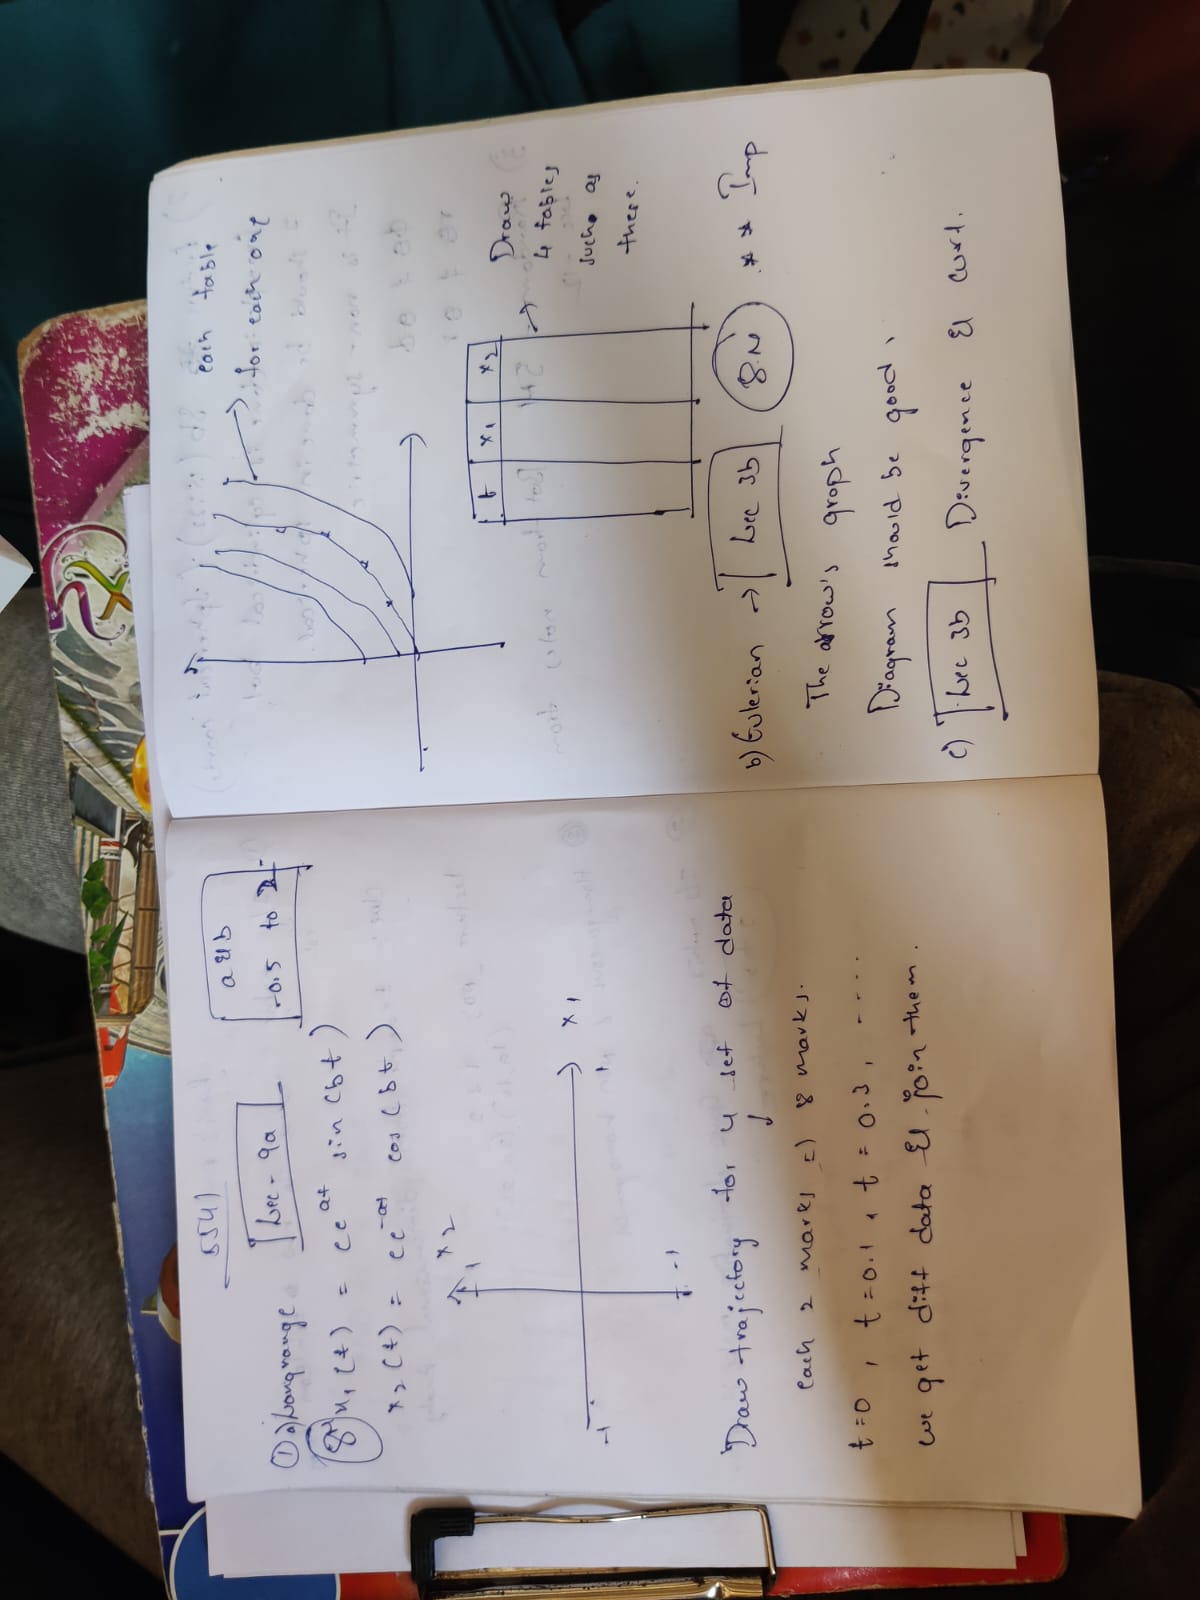 5541
a & b
-0.5 to 2
① a) Langrange
Lec - 9a
8M
x₁ (t) = c e^at sin (bt)
x₂ (t) = c e^-at cos (bt)
x₂
1
x₁
-1
1
-1
Draw trajectory for 4 set of data
each 2 marks => 8 marks.
t=0, t=0.1, t=0.3, .....
we get diff data & join them.
each table
for each one
t x₁ x₂
Draw
4 tables
such as
these.
b) Eulerian → Lec 3b 8M ** Imp
The arrow's graph
Diagram should be good.
c) Lec 3b Divergence & curl.